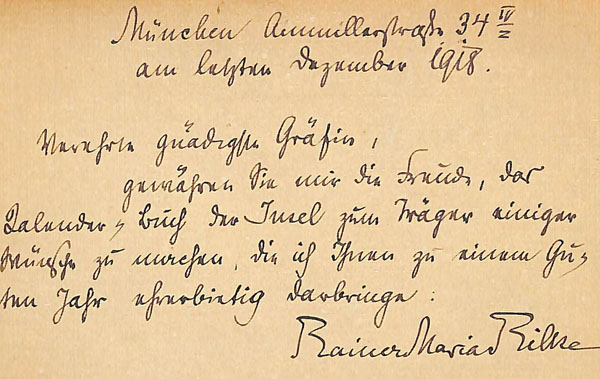 München Ainmillerstraße 34 IV/2
am letzten Dezember 1918.
Verehrte gnädigste Gräfin,
gewähren Sie mir die Freude, das
Kalender-Buch der Insel zum Träger einiger
Wünsche zu machen, die ich Ihnen zu einem Gu-
ten Jahr ehrerbietig darbringe:
Rainer Maria Rilke